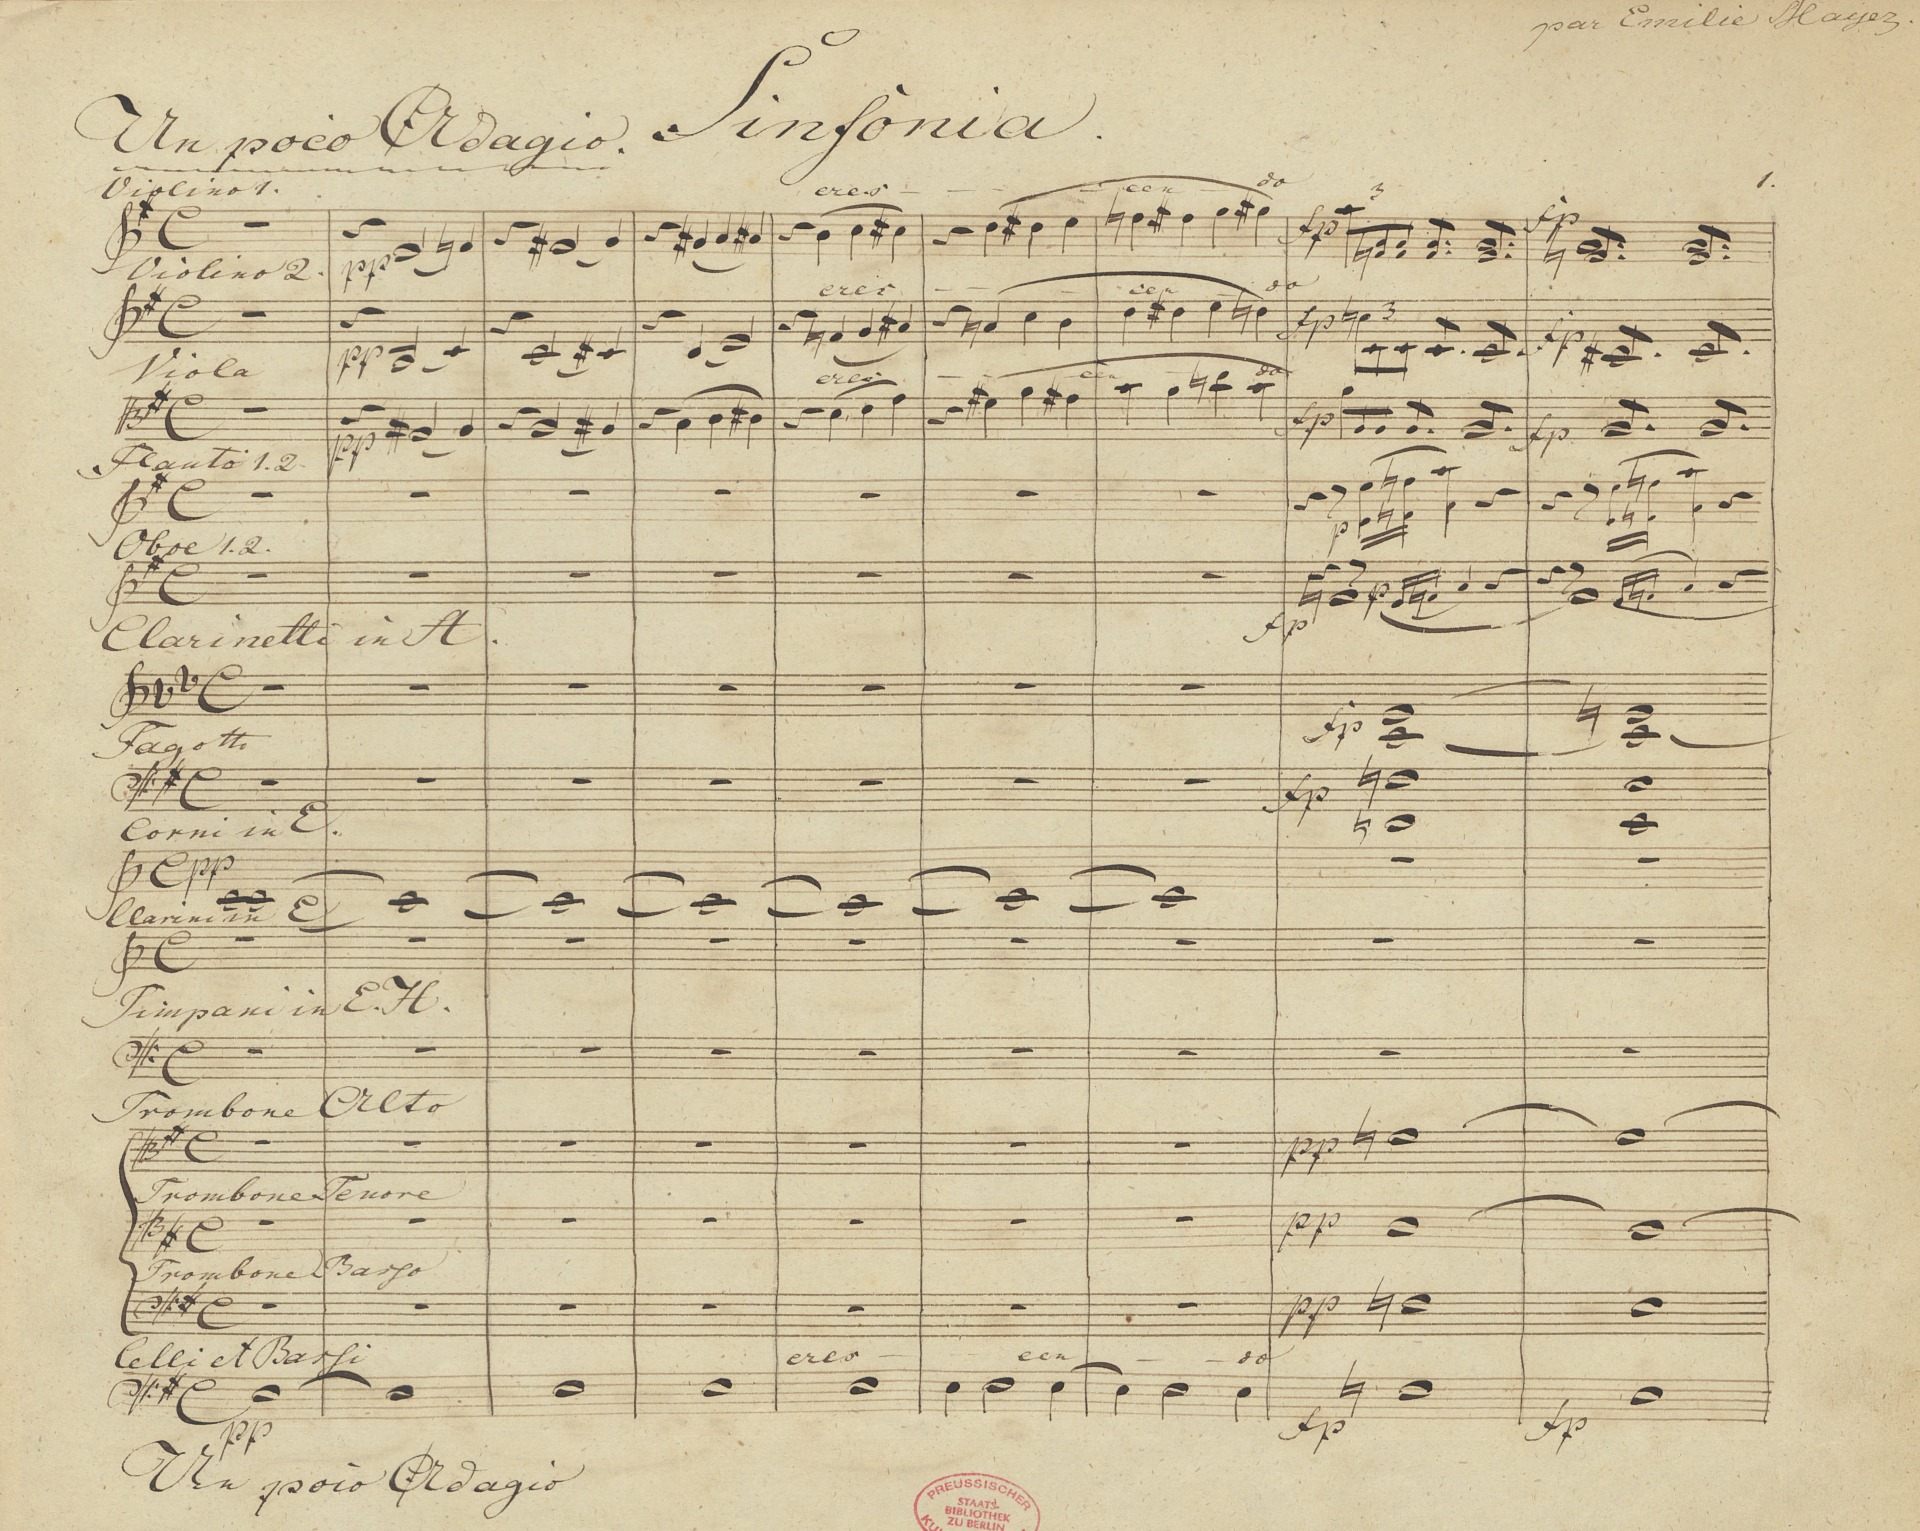 par Emilie Mayer.
Sinfonia.
Un poco Adagio.
1.
Violino 1.
cres - - - cen - do
3
fp fp
Violino 2.
pp
cres - - cen do
fp 3 fp
Viola
pp
cres - - cen do
fp fp
Flauto 1.2.
pp
p
Oboe 1.2.
p
fp
Clarinetti in A.
fp
Fagotti
fp
Corni in E.
pp
Clarini in E
Timpani in E.H.
Trombone Alto
pp
Trombone Tenore
pp
Trombone Basso
pp
Celli et Bassi
cres - cen - - do
pp
fp fp
Un poco Adagio
PREUSSISCHER
STAATS
BIBLIOTHEK
ZU BERLIN